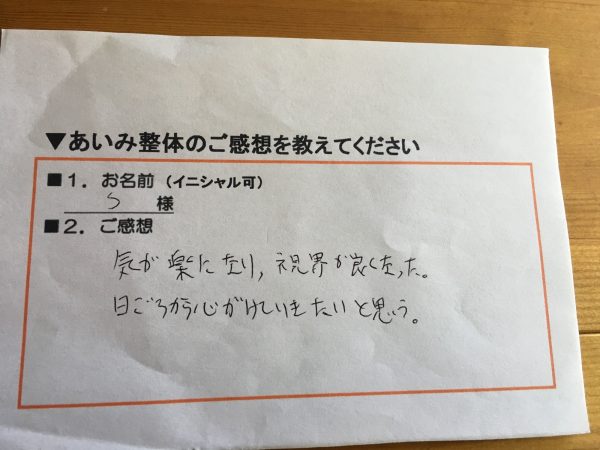 ▼あいみ整体のご感想を教えてください
■1．お名前（イニシャル可）
S 様
■2．ご感想
気が楽になり，視界が良くなった。
日ごろから心がけていきたいと思う。